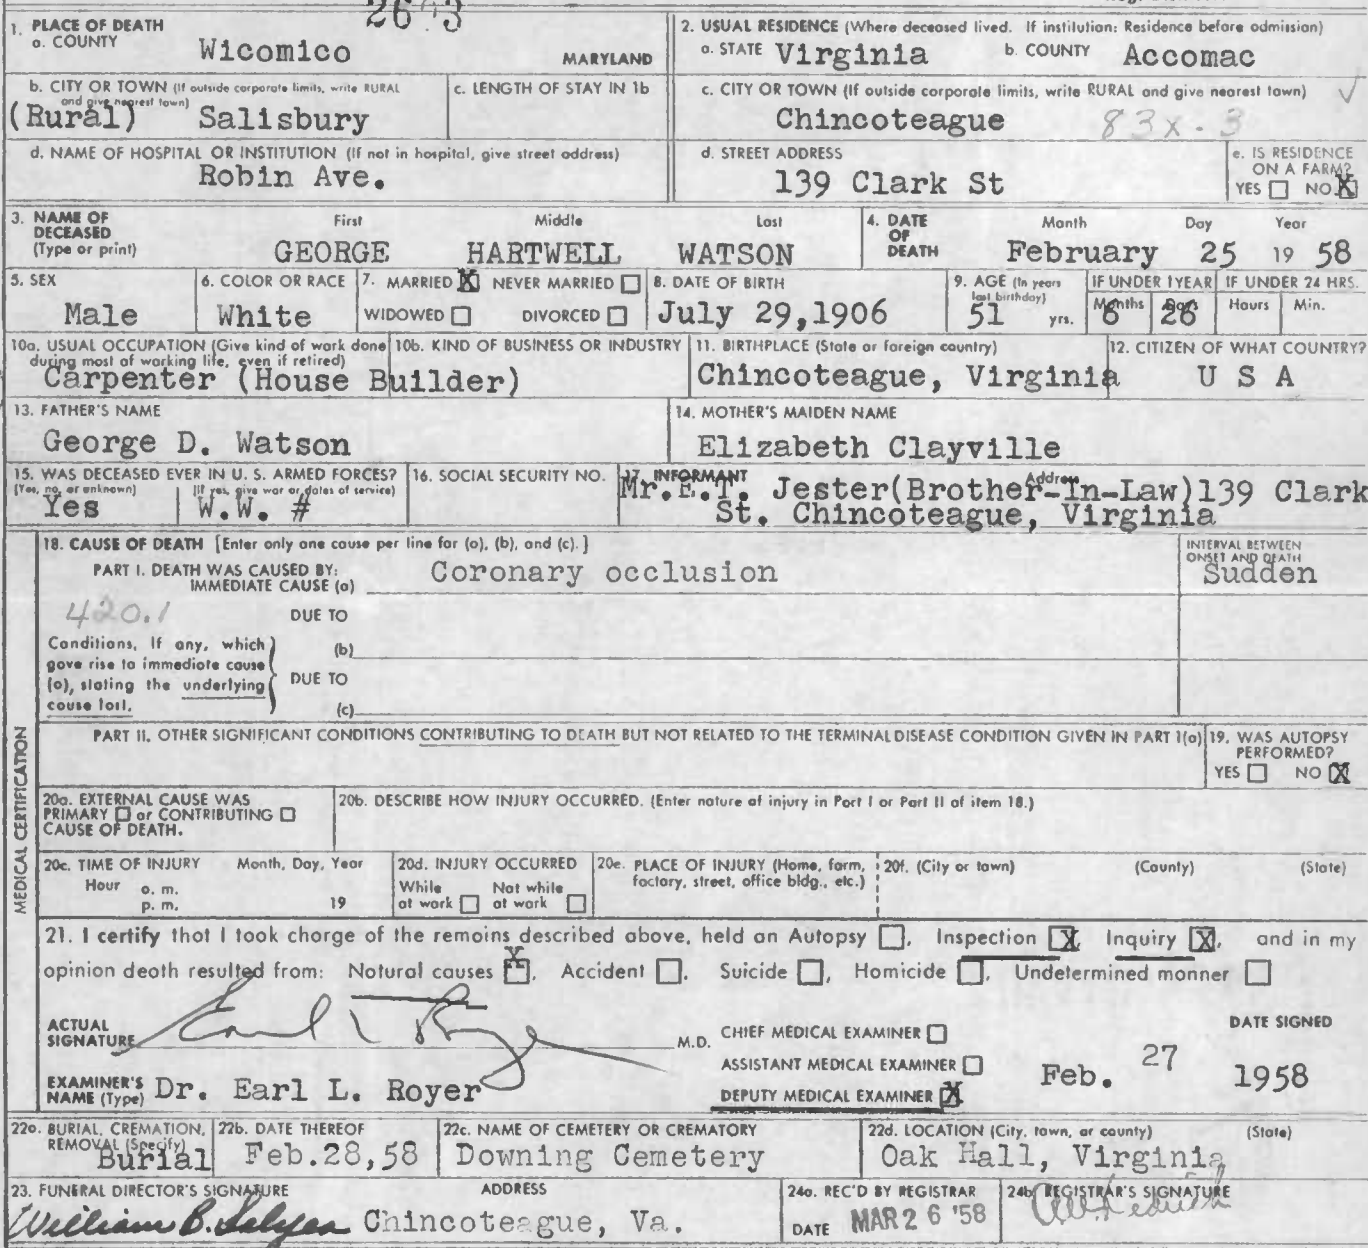 2643
1. PLACE OF DEATH
a. COUNTY
Wicomico
MARYLAND
2. USUAL RESIDENCE (Where deceased lived. If institution: Residence before admission)
a. STATE Virginia
b. COUNTY Accomac
b. CITY OR TOWN (If outside corporate limits, write RURAL and give nearest town)
(Rural) Salisbury
c. LENGTH OF STAY IN 1b
c. CITY OR TOWN (If outside corporate limits, write RURAL and give nearest town)
Chincoteague
83x.3
d. NAME OF HOSPITAL OR INSTITUTION (If not in hospital, give street address)
Robin Ave.
d. STREET ADDRESS
139 Clark St
e. IS RESIDENCE ON A FARM?
YES NO X
3. NAME OF DECEASED (Type or print)
First Middle Last
GEORGE HARTWELL WATSON
4. DATE OF DEATH
Month Day Year
February 25 19 58
5. SEX
Male
6. COLOR OR RACE
White
7. MARRIED X NEVER MARRIED
WIDOWED DIVORCED
8. DATE OF BIRTH
July 29,1906
9. AGE (In years last birthday)
51 yrs.
IF UNDER 1 YEAR
Months Days
6 26
IF UNDER 24 HRS.
Hours Min.
10a. USUAL OCCUPATION (Give kind of work done during most of working life, even if retired)
Carpenter (House Builder)
10b. KIND OF BUSINESS OR INDUSTRY
11. BIRTHPLACE (State or foreign country)
Chincoteague, Virginia
12. CITIZEN OF WHAT COUNTRY?
U S A
13. FATHER'S NAME
George D. Watson
14. MOTHER'S MAIDEN NAME
Elizabeth Clayville
15. WAS DECEASED EVER IN U. S. ARMED FORCES?
(Yes, no, or unknown) (If yes, give war or dates of service)
Yes W.W. #
16. SOCIAL SECURITY NO.
17. INFORMANT Address
Mr.E.T. Jester(Brother-In-Law)139 Clark
St. Chincoteague, Virginia
MEDICAL CERTIFICATION
18. CAUSE OF DEATH [Enter only one cause per line for (a), (b), and (c).]
PART I. DEATH WAS CAUSED BY:
IMMEDIATE CAUSE (a) Coronary occlusion
INTERVAL BETWEEN ONSET AND DEATH
Sudden
420.1
DUE TO
Conditions, if any, which gave rise to immediate cause (a), stating the underlying cause last.
(b)
DUE TO
(c)
PART II. OTHER SIGNIFICANT CONDITIONS CONTRIBUTING TO DEATH BUT NOT RELATED TO THE TERMINAL DISEASE CONDITION GIVEN IN PART I(a)
19. WAS AUTOPSY PERFORMED?
YES NO X
20a. EXTERNAL CAUSE WAS PRIMARY or CONTRIBUTING CAUSE OF DEATH.
20b. DESCRIBE HOW INJURY OCCURRED. (Enter nature of injury in Part I or Part II of item 18.)
20c. TIME OF INJURY Month, Day, Year
Hour a. m.
p. m. 19
20d. INJURY OCCURRED
While at work Not while at work
20e. PLACE OF INJURY (Home, farm, factory, street, office bldg., etc.)
20f. (City or town) (County) (State)
21. I certify that I took charge of the remains described above, held an Autopsy , Inspection X, Inquiry X, and in my
opinion death resulted from: Natural causes X, Accident , Suicide , Homicide , Undetermined manner
ACTUAL SIGNATURE Earl L Royer M.D.
CHIEF MEDICAL EXAMINER
ASSISTANT MEDICAL EXAMINER
DEPUTY MEDICAL EXAMINER X
DATE SIGNED
Feb. 27 1958
EXAMINER'S NAME (Type) Dr. Earl L. Royer
22a. BURIAL, CREMATION, REMOVAL (Specify)
Burial
22b. DATE THEREOF
Feb.28,58
22c. NAME OF CEMETERY OR CREMATORY
Downing Cemetery
22d. LOCATION (City, town, or county) (State)
Oak Hall, Virginia
23. FUNERAL DIRECTOR'S SIGNATURE ADDRESS
William B. Salyer Chincoteague, Va.
24a. REC'D BY REGISTRAR
DATE MAR 26 '58
24b. REGISTRAR'S SIGNATURE